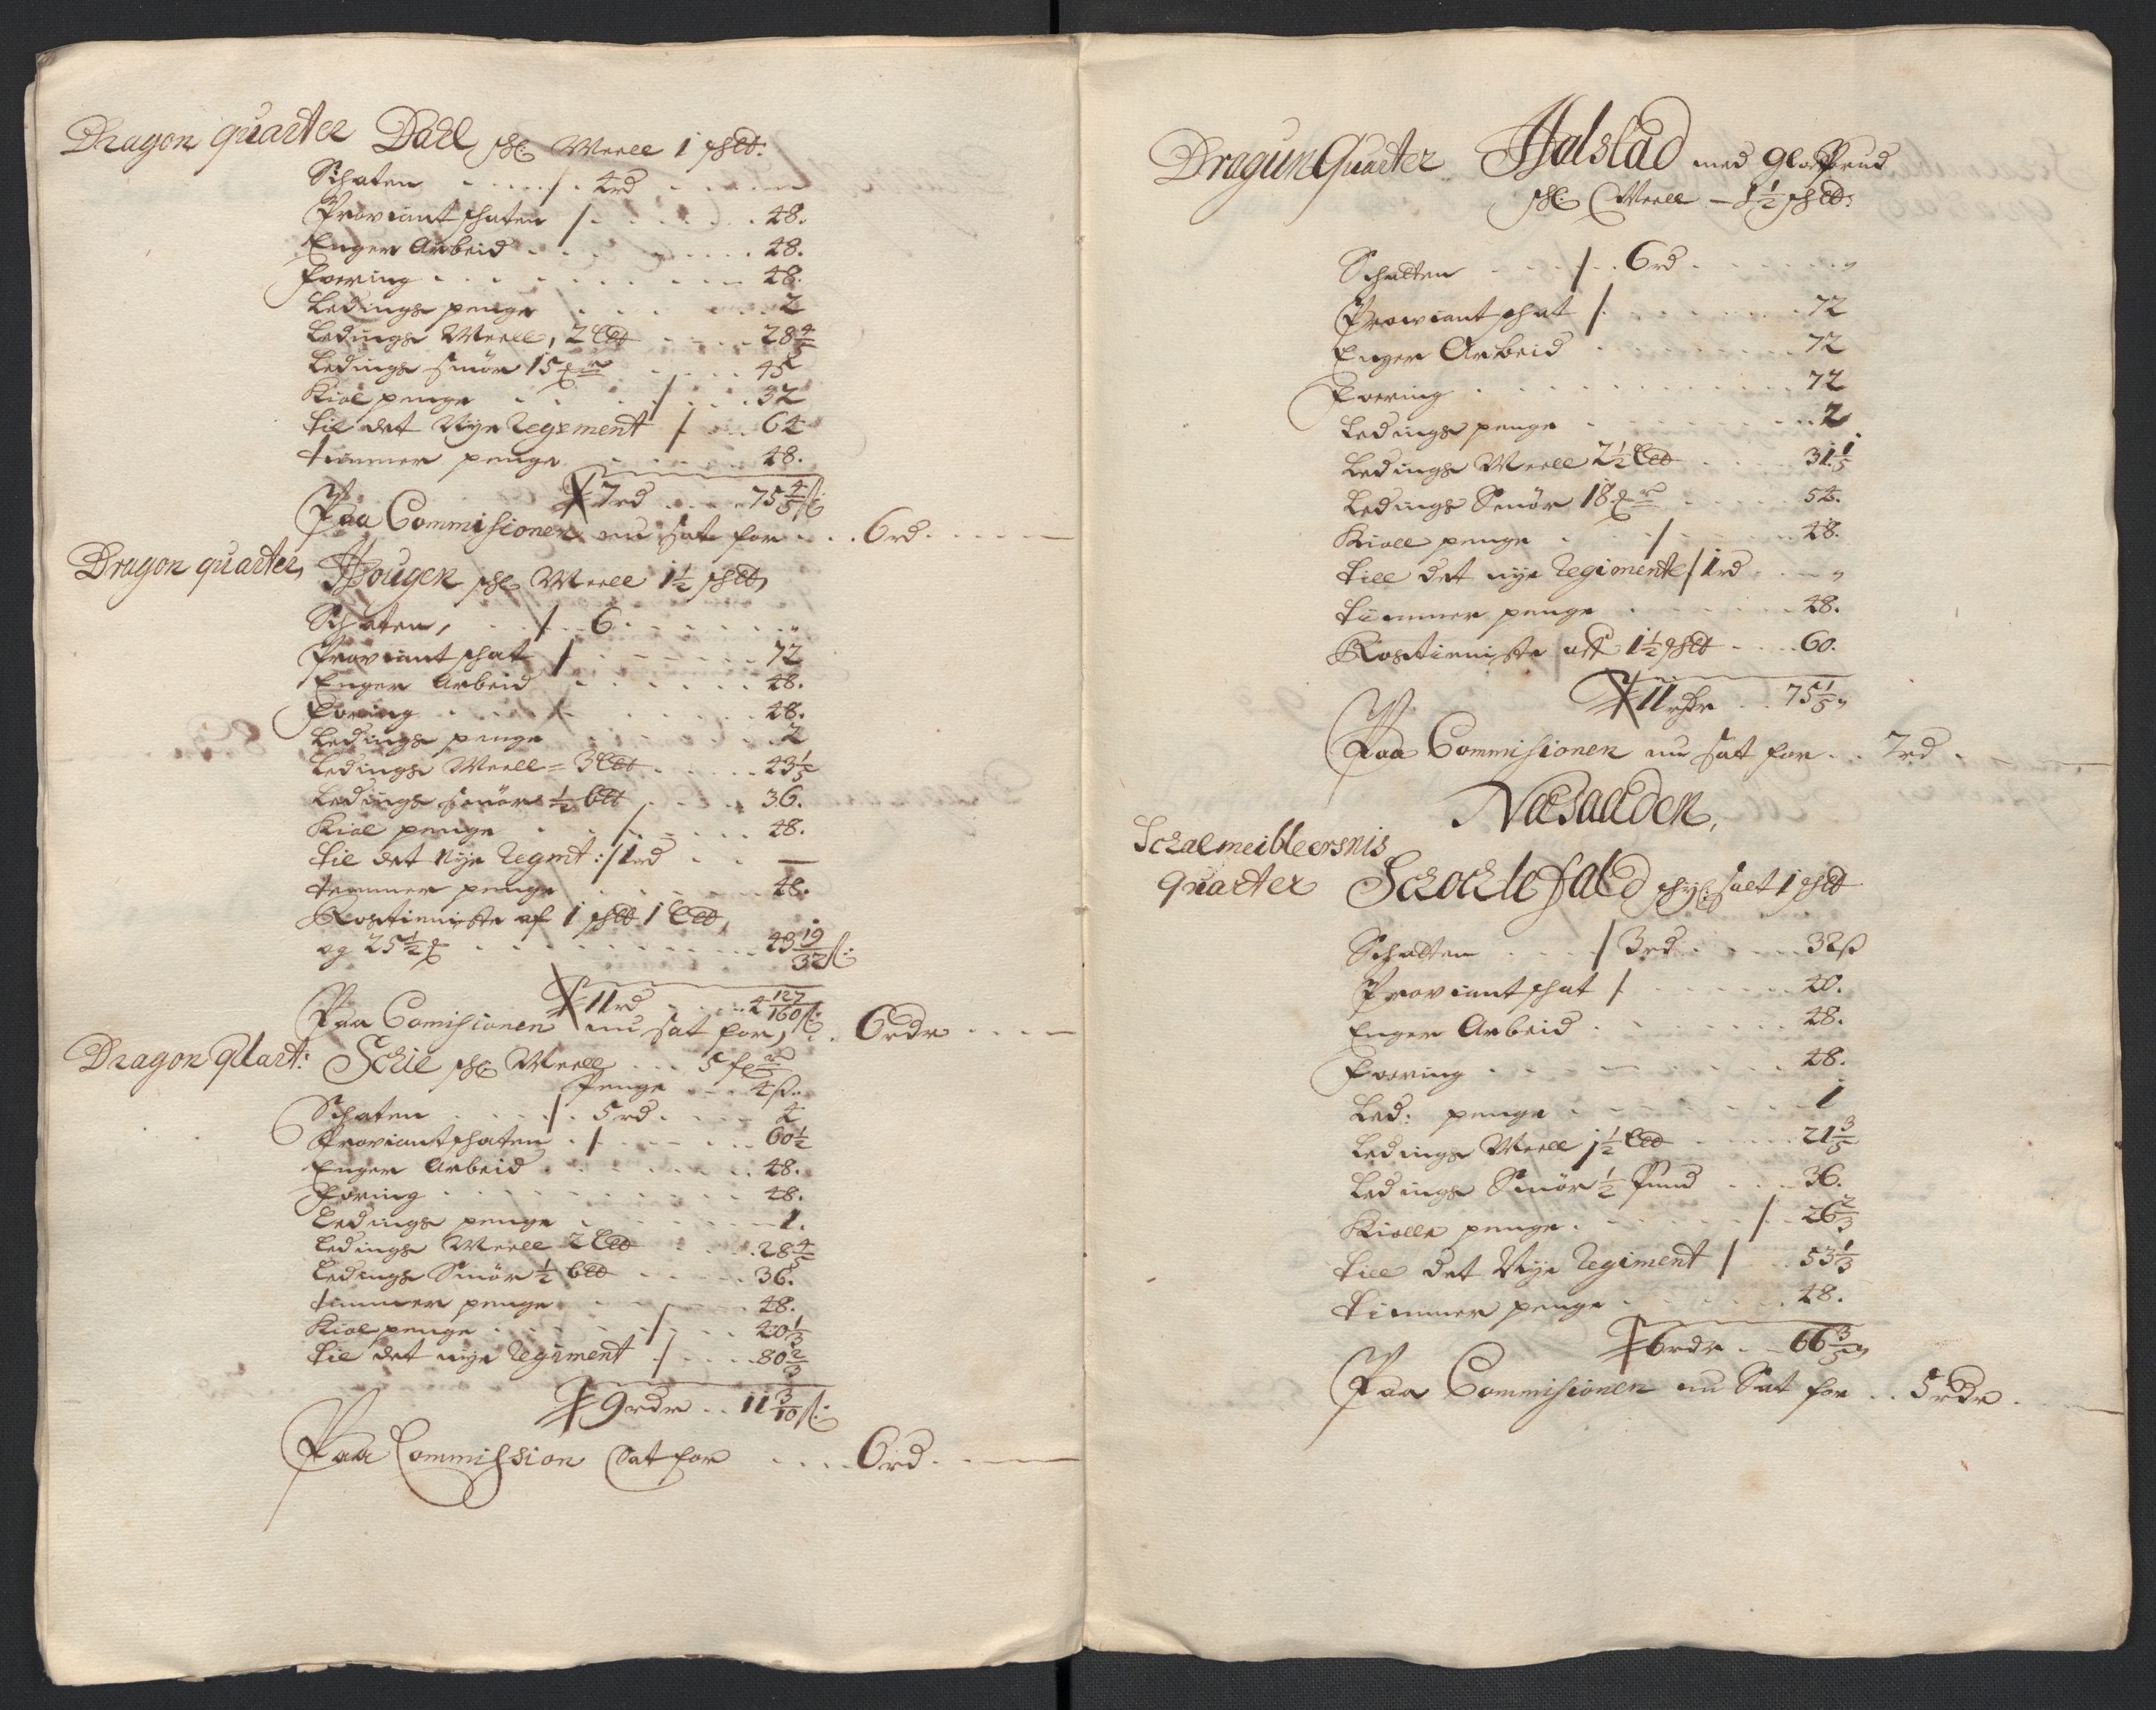 Dragon quarter Dall sk: Meell 1 skld:
Schaten . . . . / . 4rd . . . . . "
Proviant schaten / . . . . . . 48.
Enger Arbeid . . . . . . . 48.
Foering . . . . . . . . 48.
Ledings penge . . . . . . 2
Ledings Meell, 2 Lld . . . . 28 4/5
Ledings smør 15 . . . . 45
Kiøl penge . . . . / . . . 32
til det Nye Regement / . . . 64
tiømmer penge . . . . . 48.
7rd . . . . 75 4/5 s:
Paa Commisionen nu sat for . . . . 6rd. . . . . —
Dragon quarter, Hougen sk: Meell 1 1/2 skld,
Schaten, . . . / . . 6 . . . . . . . "
Proviant schat / . . . . . . 72
Enger Arbeid . . . . . . 48.
Foering . . . . . . . 48.
Ledings penge . . . . . . 2
Ledings Meell = 3 Lld . . . . . 43 1/5
Ledings smør 1/2 bld . . . . 36.
Kiøl penge . . . . / . . . . 48.
til det Nye Regmt: / 1rd . . . —
tømmer penge . . . . . . 48.
Rostieniste af 1 skld 1 Lld,
og 25 1/2 . . . . . . . . . 43 19/32 s:
11rd . . . . 4 127/160 s:
Paa Comisionen nu sat for, . . 6rdr . . . . —
Dragon Quart: Schie sk: Meell . . . 5
Penge . . . 4 s.
Schaten . . . . / . 5rd . . . . 4
Proviantschaten . / . . . . . . 60 1/2
Enger Arbeid . . . . . . . 48.
Foring . . . . . . . . . 48.
Ledings penge . . . . . . 1.
Ledings Meell 2 Lld . . . . 28 4/5
Ledings Smør 1/2 bld . . . . . 36.
tømmer penge . . . . . . 48.
Kiøl penge . . . . . / . . . 40 1/3
til det nye Regiment . / . . . . 80 2/3
9rdr . . 11 3/10 s:
Paa Commission Sat for . . . . 6rd . . —
Dragun Quarter Halstad med
sk: Meell — 1 1/2 skld:
Schatten . . . . / . . 6rd . . . . . . "
Proviant schat / . . . . . . . 72
Enger Arbeid . . . . . . . 72
Foering . . . . . . . . . . 72
Ledings penge . . . . . . . . 2
Ledings Meell 2 1/2 Lld . . . . 31 1/5
Ledings Smør 18 . . . . . 54.
Kiøll penge . . . . / . . . . . 48.
till det nye Regimente / 1rd . . . "
tømmer penge . . . . . . . 48.
Rostieniste aff 1 1/2 skld . . . . 60.
11rdr . . 75 1/5 "
Paa Commisionen nu sat for . . 7rd . —
Næsaaden,
Schalmeibleersnis
quarter Schochlefald sk: salt 1 skld
Schatten . . . . / 3rd . . . . . 32 s
Proviant schat / . . . . . . 40.
Enger Arbeid . . . . . . . 48.
Foering . . . . . . . . . 48.
Led: penge . . . . . . . . 1
Ledings Meell 1 1/2 Lld . . . . . 21 3/5
Ledings Smør 1/2 Pund . . . . 36.
Kiølle penge . . . . . . / . . 26 2/3
till det Nye Regiment / . . . 53 1/3
tiømmer penge . . . . . . . 48.
6rdr . . 66 3/5 "
Paa Commisionen nu Sat for . . 5rdr . —